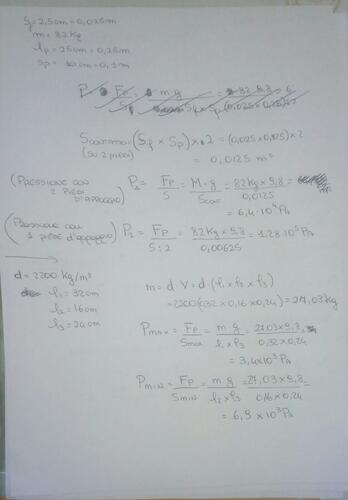 m = 82 Kg
lp = 25cm = 0,25m
Sp = 10cm = 0,1m
(SU 2 PIEDI)
= 0,0125 m²
(PRESSIONE CON 2 PIEDI D'APPOGGIO) P₁ = Fp/S = M·g/Sscar = 82Kg × 9,8/0,0125 =
= 6,4·10⁴ Pa
(PRESSIONE CON 1 PIEDE d'appoggio) P₂ = Fp/S:2 = 82Kg × 9,8/0,00625 = 1,28·10⁵ Pa
d = 2700 Kg/m³
l₁ = 32cm
l₂ = 16cm
l₃ = 24cm
m = d V = d (l₁ × l₂ × l₃)
= 2200(0,32 × 0,16 × 0,24) = 27,03 Kg
Pmax = Fp/Smax = m g/l₁ × l₃ = 27,03 × 9,8/0,32 × 0,24
= 3,4×10³ Pa
PMIN = Fp/SMIN = m g/l₂ × l₃ = 27,03 × 9,8/0,16 × 0,24 =
= 6,9 × 10³ Pa